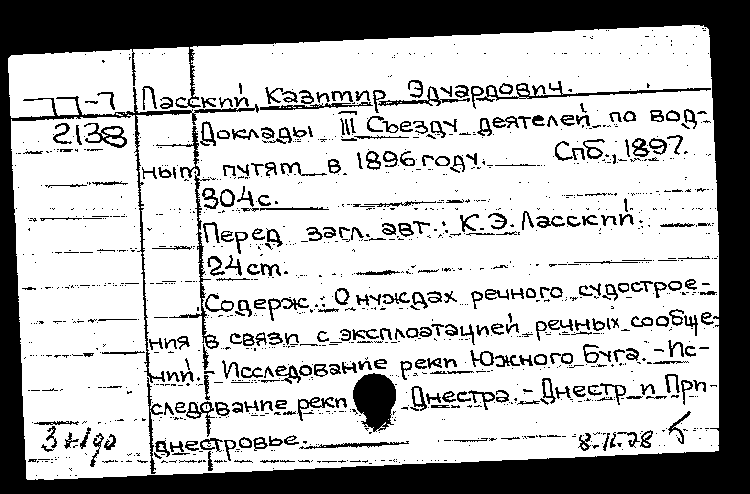 П-7 Ласский, Казимир Эдуардович.
2138 Доклады III Съезду деятелей по вод-
ным путям в 1896 году. Спб., 1897.
304 с.
Перед загл. авт.: К.Э. Ласский.
24 cm.
Содерж.: О нуждах речного судострое-
ния в связи с эксплоатацией речных сообще-
ний. - Исследование реки Южного Буга. - Ис-
следование реки Днестра. - Днестр и При-
днестровье.
8-II-28